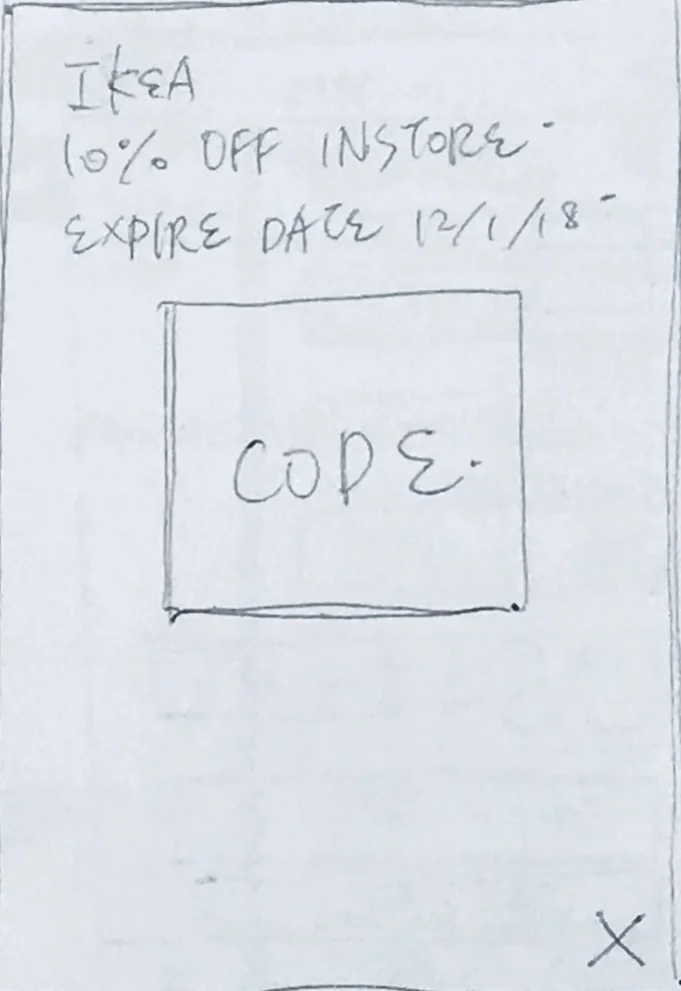 IKEA
10% OFF INSTORE
EXPIRE DATE 12/1/18
CODE.
X